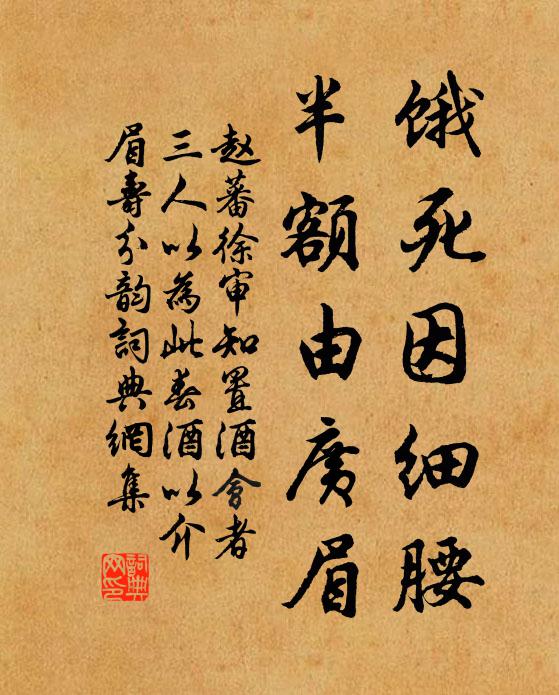 饿死因细腰
半额由广眉
赵蕃徐审知置酒会者
三人以为此春酒以介
眉寿分韵词典网集
词典
网印